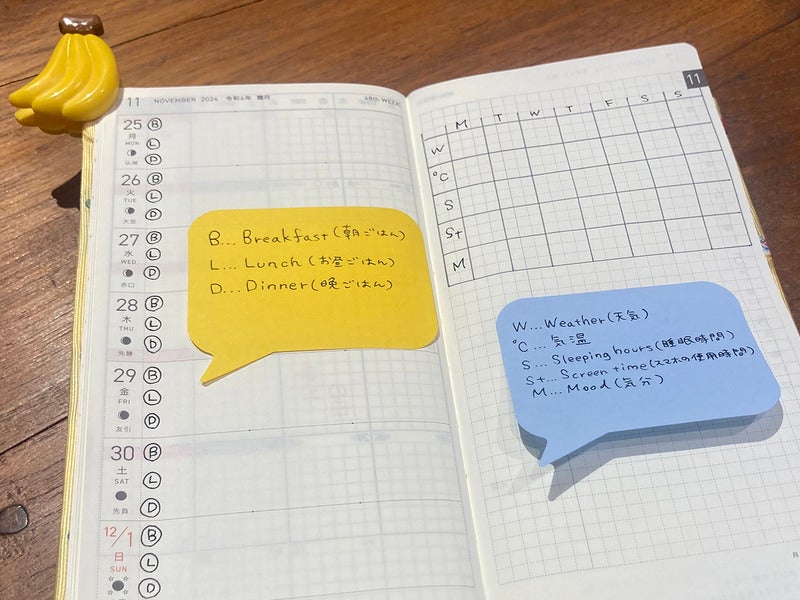 11 NOVEMBER 2024 令和6年 霜月 48th WEEK
25 B
月 MON L
仏滅 D
26 B
火 TUE L
大安 D
27 B
水 WED L
赤口 D
28 B
木 THU L
先勝 D
29 B
金 FRI L
友引 D
30 B
土 SAT L
先負 D
12/1 B
日 SUN L
D
B... Breakfast(朝ごはん)
L... Lunch (お昼ごはん)
D... Dinner(晩ごはん)
11
M T W T F S S
W
°C
S
St
M
W...Weather(天気)
°C...気温
S...Sleeping hours(睡眠時間)
St...Screen time(スマホの使用時間)
M...Mood(気分)